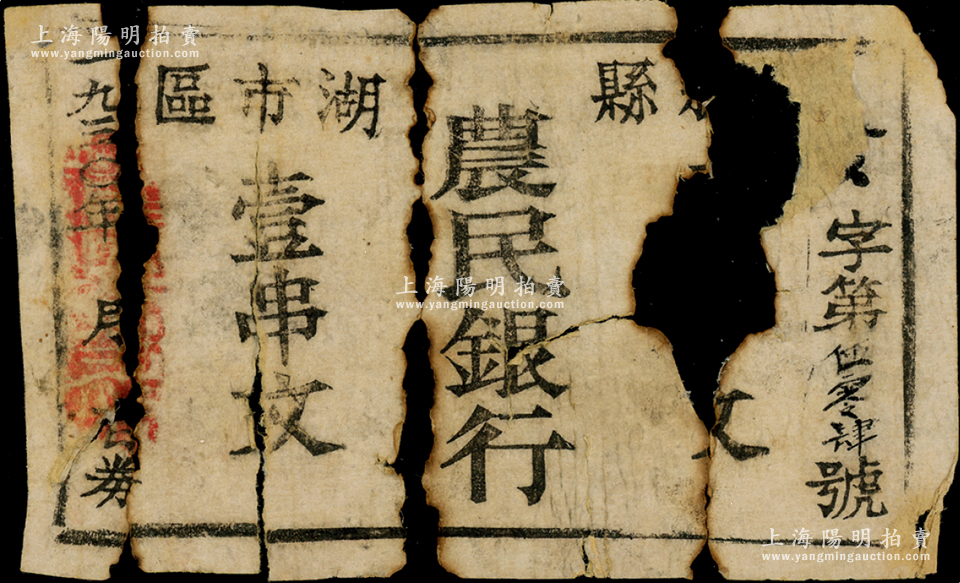 上海陽明拍賣
www.yangmingauction.com
字第伍零肆號
縣
文
農民銀行
湖市區
壹串文
九三〇年 月 公券
上海陽明拍賣
www.yangmingauction.com
上海陽明拍賣
www.yangmingauction.com